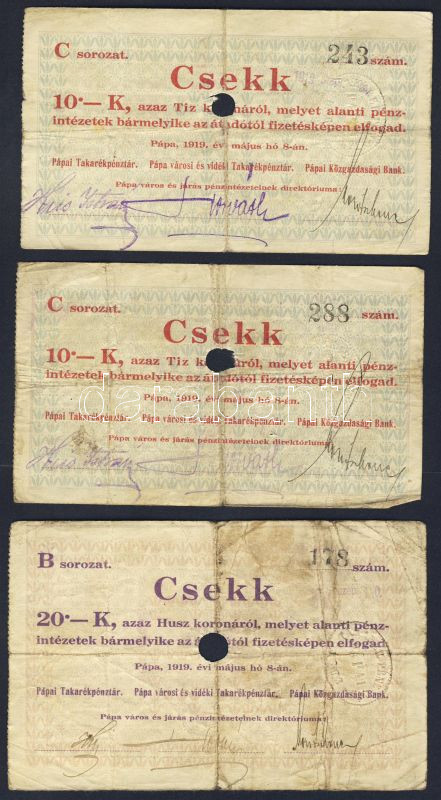 C sorozat. 243 szám.
Csekk
10·— K, azaz Tiz koronáról, melyet alanti pénz-
intézetek bármelyike az átadótól fizetésképen elfogad.
Pápa, 1919. évi május hó 8-án.
Pápai Takarékpénztár. Pápa városi és vidéki Takarékpénztár. Pápai Közgazdasági Bank.
Pápa város és járás pénzintézeteinek direktóriuma:
Horváth
C sorozat. 288 szám.
Csekk
10·— K, azaz Tiz koronáról, melyet alanti pénz-
intézetek bármelyike az átadótól fizetésképen elfogad.
Pápa, 1919. évi május hó 8-án.
Pápai Takarékpénztár. Pápa városi és vidéki Takarékpénztár. Pápai Közgazdasági Bank.
Pápa város és járás pénzintézeteinek direktóriuma:
Horváth
B sorozat. 178 szám.
Csekk
20·— K, azaz Husz koronáról, melyet alanti pénz-
intézetek bármelyike az átadótól fizetésképen elfogad.
Pápa, 1919. évi május hó 8-án.
Pápai Takarékpénztár. Pápa városi és vidéki Takarékpénztár. Pápai Közgazdasági Bank.
Pápa város és járás pénzintézeteinek direktóriuma: